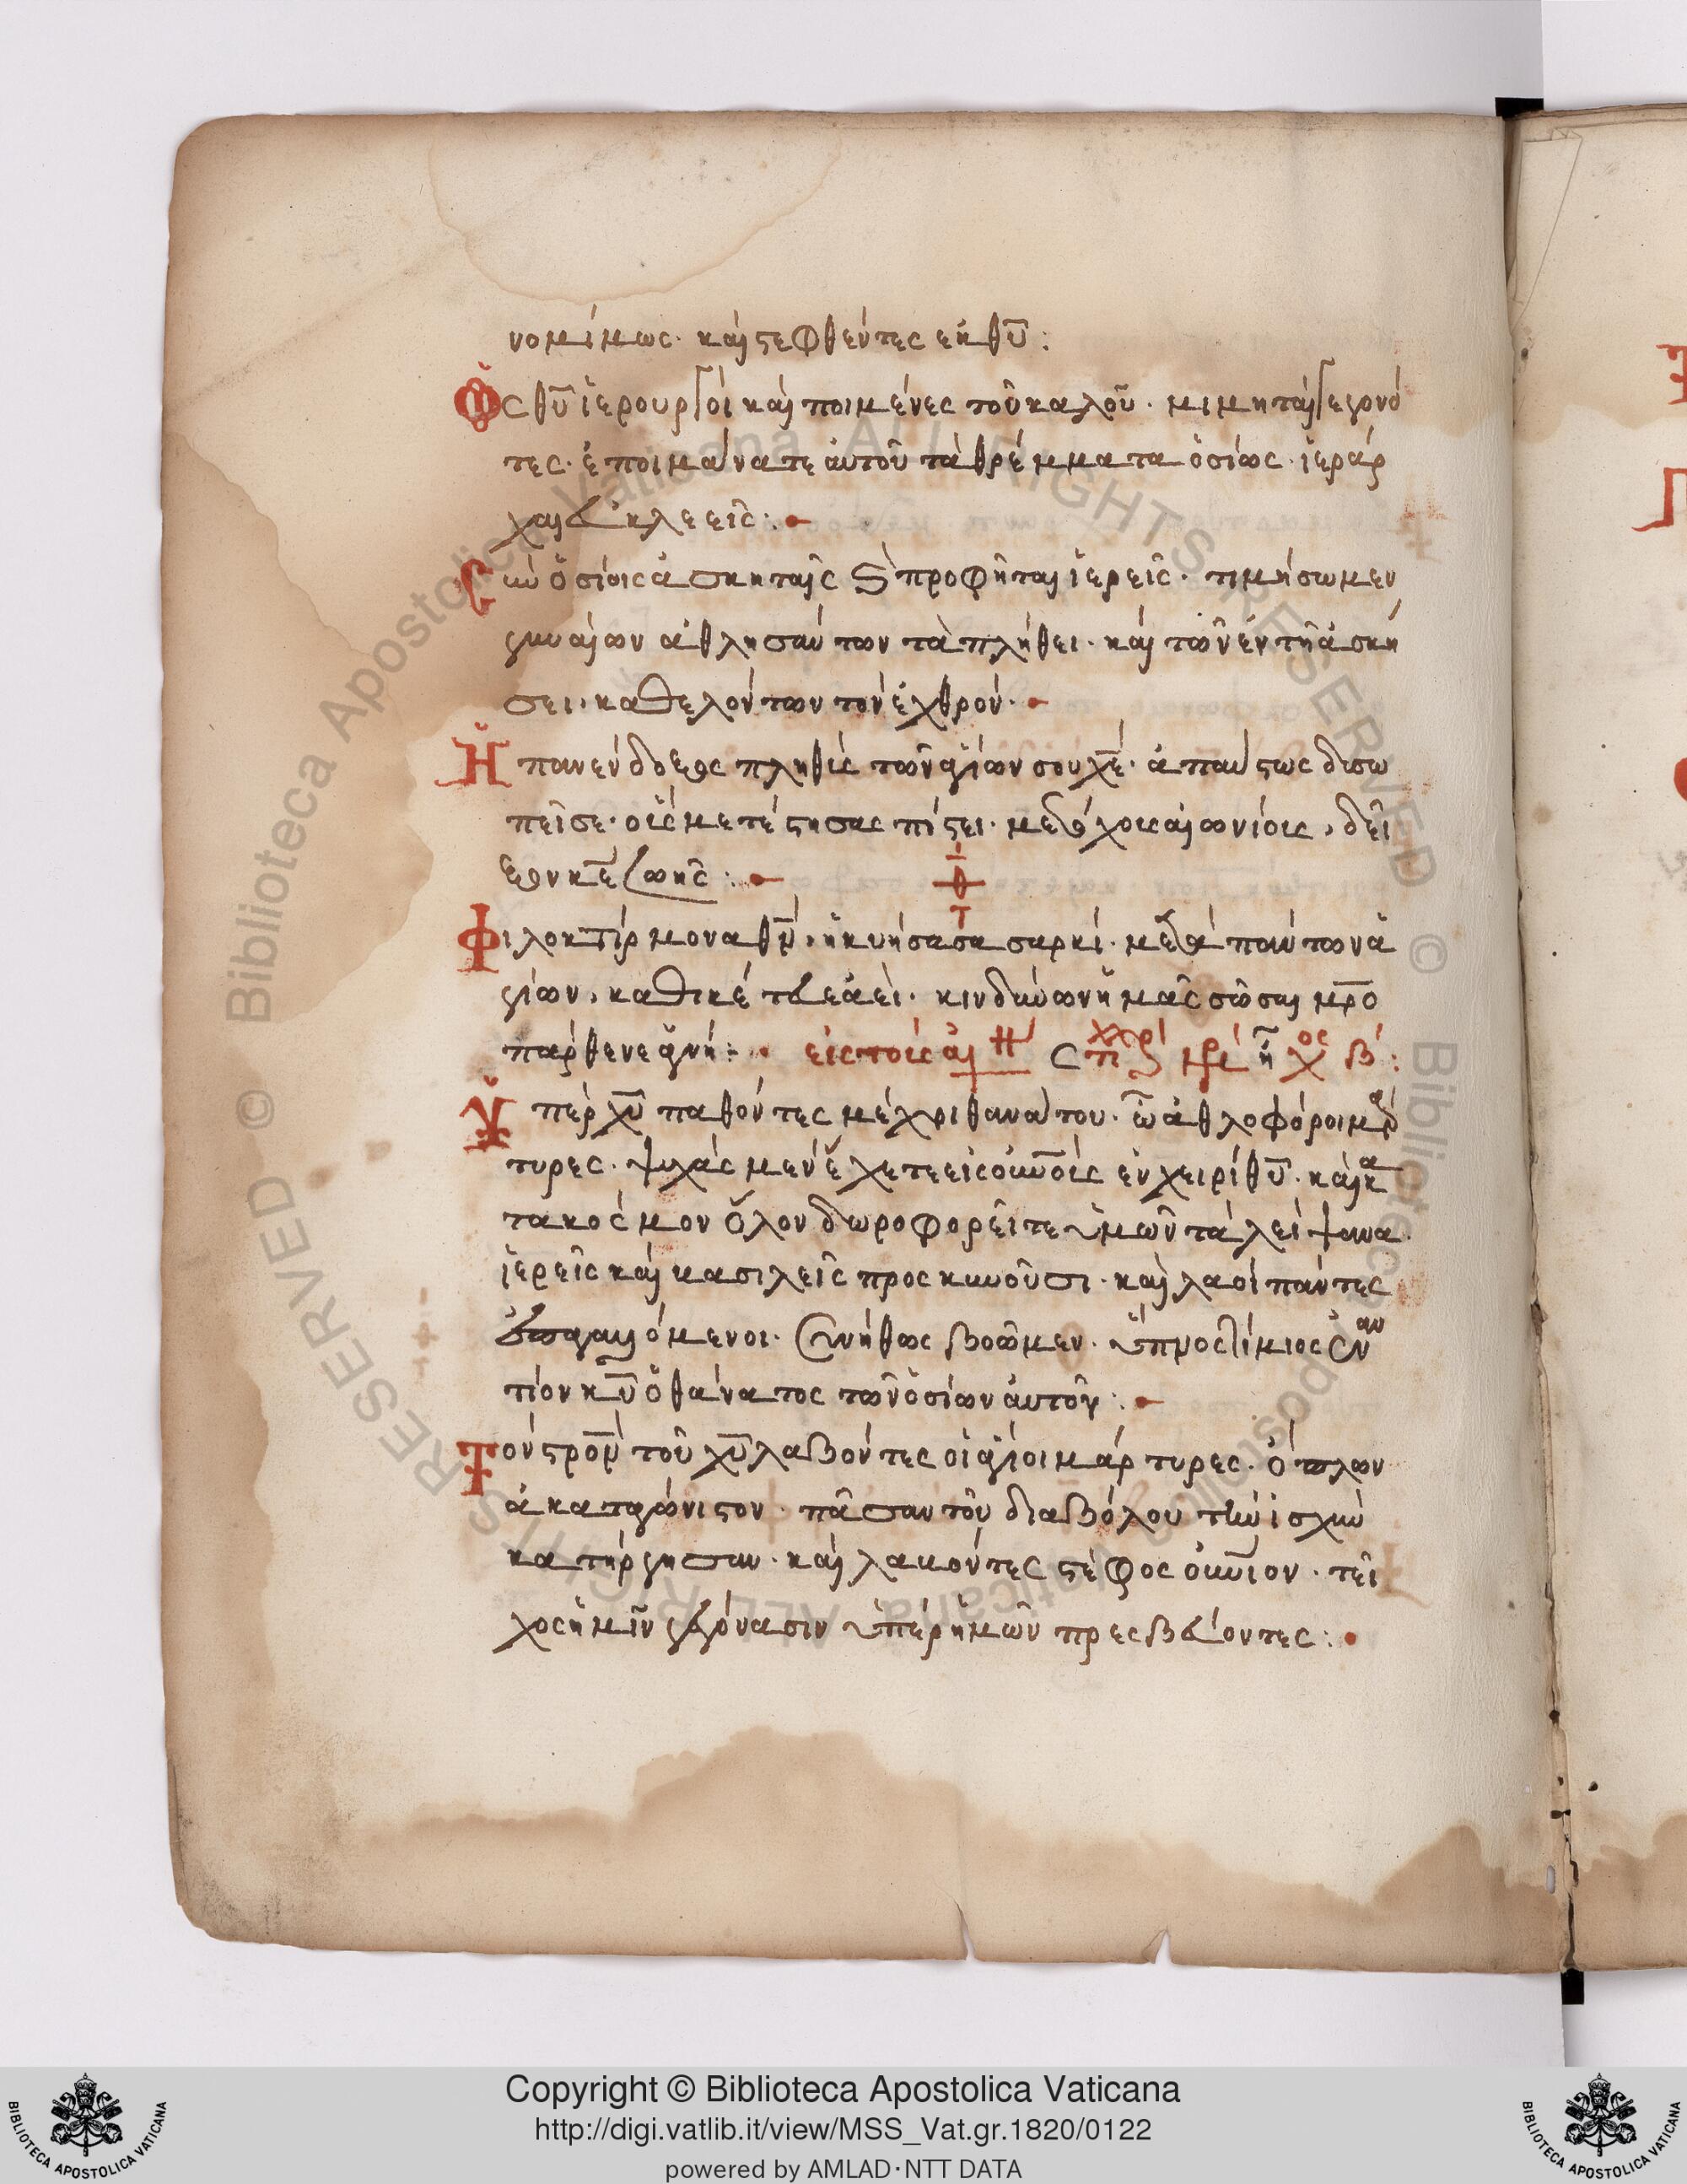 νομίμως· καὶ στεφθέντες ἐκ θυ:
Ὡς θυ ἱερουργοὶ καὶ ποιμένες τοῦ καλοῦ· μιμηταὶ γεγονό
τες· ἐποιμάνατε αὐτοῦ τὰ θρέμματα ὁσίως· ἱεράρ
χαι εὐκλεεῖς:
Σὺν ὁσίοις ἀσκηταῖς προφῆται ἱερεῖς· τιμήσωμεν
γυναίων ἀθλησάντων τὰ πλήθει· καὶ τῶν ἐν τῇ ἀσκή
σει· καθελόντων τὸν ἐχθρόν·
Ἡ πανένδοξος πληθὶς τῶν ἁγίων σου χε· ἀπαύστως δυσω
πεῖ σε· οἷς μετέστησας πίστει· μετόχοις αἰωνίοις, δεῖ
ξον κε ζωῆς:
Φιλοκτίρμονα θν, ἡ κυήσασα σαρκί· μετὰ πάντων ἁ
γίων, καθικέτευε ἀεὶ· κινδύνων ἡμᾶς σῶσαι μρο
παρθενε ἁγνή: εἰς τοὺς αἰ
Ὑπὲρ χυ παθόντες μέχρι θανάτου· ὦ ἀθλοφόροι μάρ
τυρες· ψυχὰς μὲν ἔχετε εἰς οὐνοὺς ἐν χειρὶ θυ· καὶ κα
τα κόσμον ὅλον δωροφορεῖτε ὑμῶν τὰ λείψανα·
ἱερεῖς καὶ βασιλεῖς προσκυνοῦσι· καὶ λαοὶ πάντες
ἐπαγαλόμενοι· συνήθως βοῶμεν· ὑπρος τίμιος ἐναν
τίον κυ ὁ θάνατος τῶν ὁσίων αὐτοῦ:
Τὸν στρον τοῦ χυ λαβόντες οἱ ἅγιοι μάρτυρες· ὅπλον
ἀκαταγώνιστον· πᾶσαν τοῦ διαβόλου τὴν ἰσχὺν
κατήργησαν· καὶ λαβόντες στέφος οὐνιον· τεῖ
χος ἡμῖν γεγόνασιν ὑπὲρ ἡμῶν πρεσβεύοντες:
Copyright © Biblioteca Apostolica Vaticana
http://digi.vatlib.it/view/MSS_Vat.gr.1820/0122
powered by AMLAD·NTT DATA
BIBLIOTECA APOSTOLICA VATICANA
BIBLIOTECA APOSTOLICA VATICANA
© Biblioteca Apostolica Vaticana ALL RIGHTS RESERVED
© Biblioteca Apostolica Vaticana ALL RIGHTS RESERVED